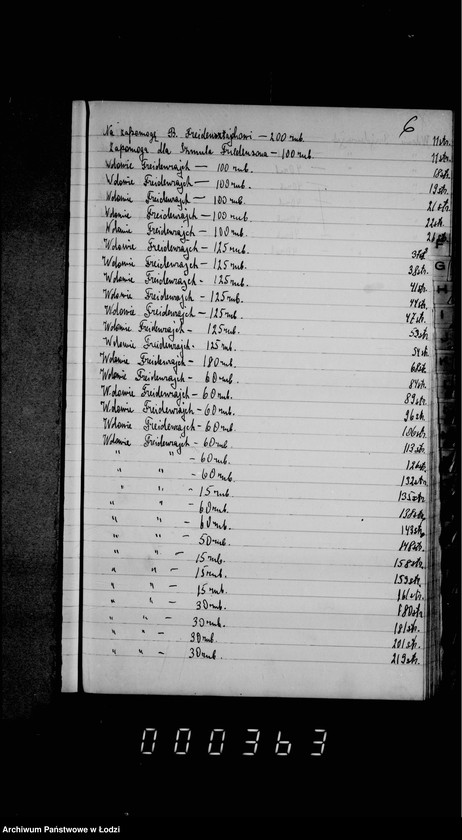 6
Na zapomogę B. Freidenrajchowi — 200 rub. 11 str.
Zapomoga dla Szmula Friedensona — 100 rub. 11 str.
Wdowie Freidenrajch — 100 rub. 18 str.
Wdowie Freidenrajch — 100 rub. 19 str.
Wdowie Freidenrajch — 100 rub. 21 str.
Wdowie Freidenrajch — 100 rub. 22 str.
Wdowie Freidenrajch — 100 rub. str.
Wdowie Freidenrajch — 125 rub. 37 str.
Wdowie Freidenrajch — 125 rub. 38 str.
Wdowie Freidenrajch - 125 rub. 41 str.
Wdowie Freidenrajch - 125 rub. 44 str.
Wdowie Freidenrajch - 125 rub. 47 str.
Wdowie Freidenrajch - 125 rub. 53 str.
Wdowie Freidenrajch - 125 rub. 54 str.
Wdowie Freidenrajch - 180 rub. 68 str.
Wdowie Freidenrajch - 60 rub. 84 str.
Wdowie Freidenrajch - 60 rub. 89 str.
Wdowie Freidenrajch - 60 rub. 96 str.
Wdowie Freidenrajch - 60 rub. 106 str.
Wdowie Freidenrajch - 60 rub 113 str.
" " - 60 rub. 126 str.
" " - 60 rub. 132 str.
" " - 15 rub. 135 str.
" " - 60 rub. 138 str.
" " - 60 rub. 143 str.
" " - 50 rub. 148 str.
" " — 15 rub. 158 str.
" " — 15 rub. 159 str.
" " — 15 rub. 161 str.
" " — 30 rub. 180 str.
" " — 30 rub. 181 str.
" " — 30 rub. 201 str.
" " — 30 rub. 219 str.
F
G
H
I
000363
Archiwum Państwowe w Łodzi